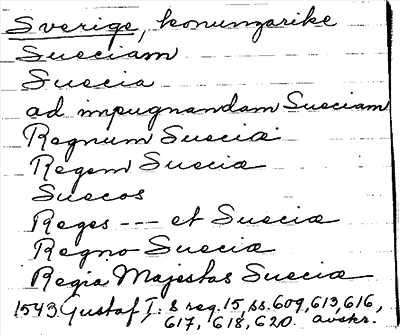 Sverige, konungarike
Sueciam
Suecia
ad impugnandam Sueciam
Regnum Sueciæ
Regem Sueciæ
Suecos
Reges --- et Sueciæ
Regno Sueciæ
Regia Majestas Sueciæ
1543. Gustaf I: s reg. 15, ss. 609, 613, 616,
617, 618, 620. avskr.